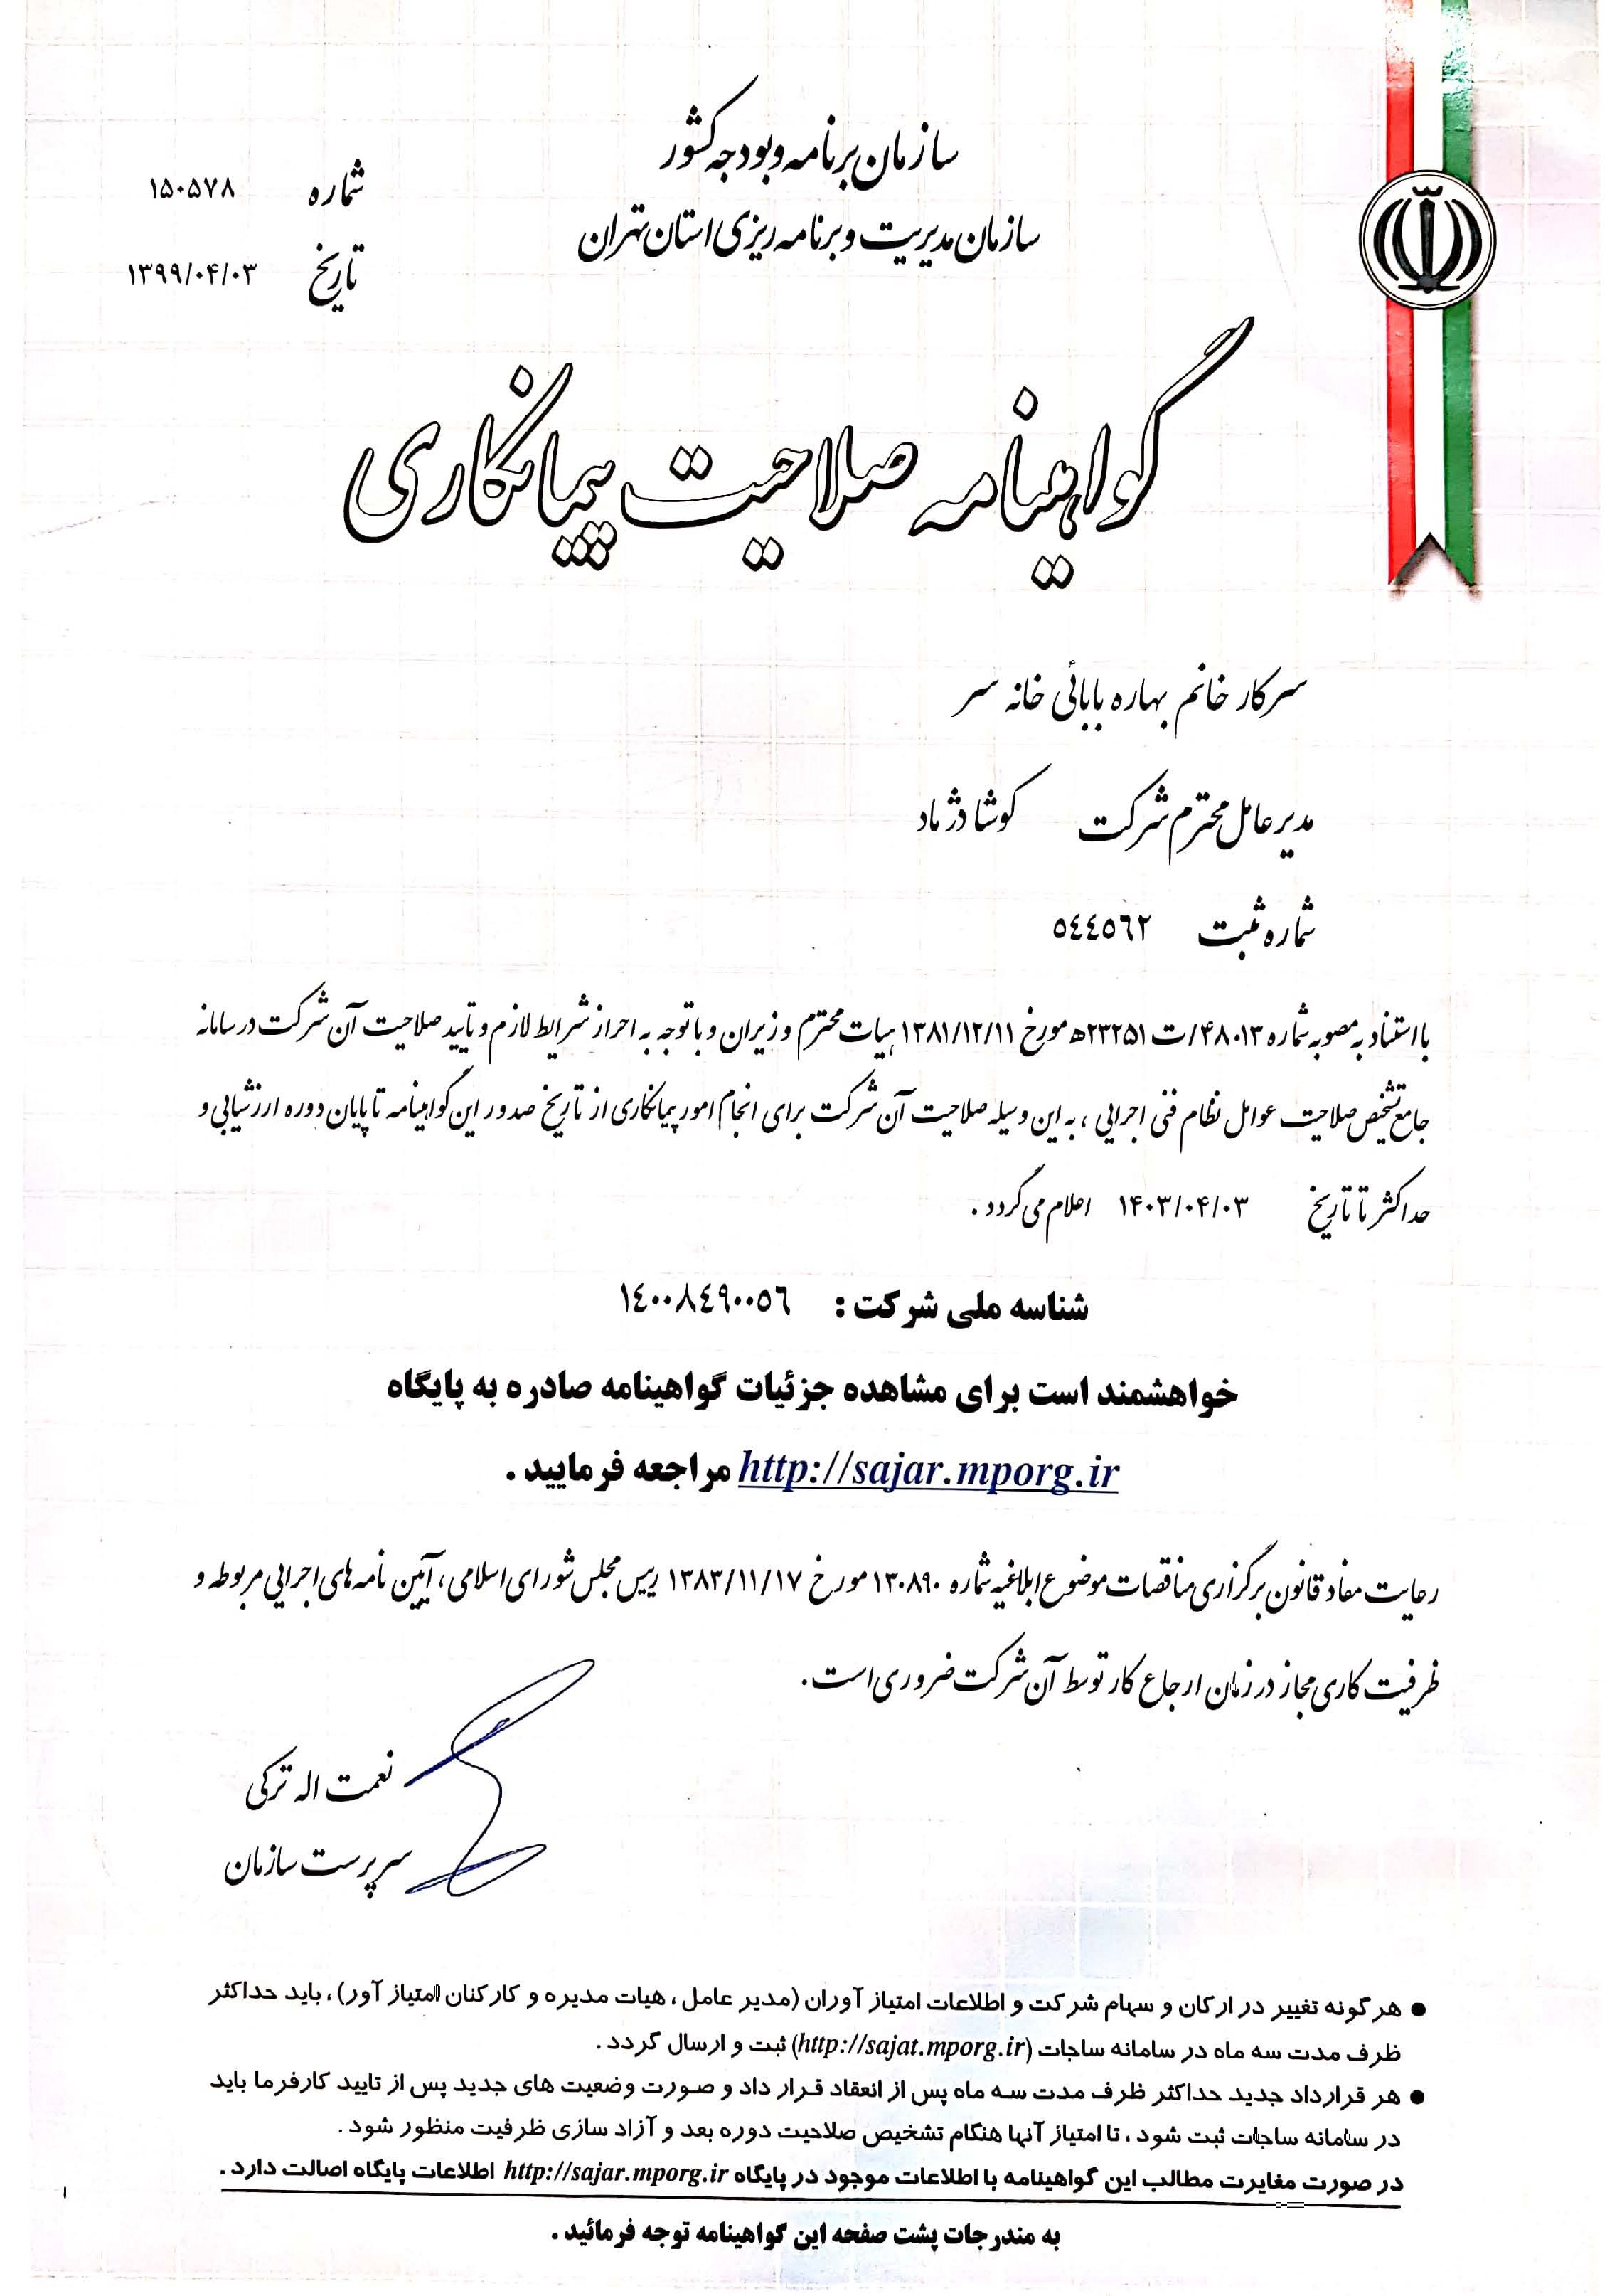 سازمان برنامه و بودجه کشور
سازمان مدیریت و برنامه ریزی استان تهران
شماره ۱۵۰۵۷۸
تاریخ ۱۳۹۹/۰۴/۰۳
گواهینامه صلاحیت پیمانکاری
سرکار خانم بهاره بابائی خانه سر
مدیر عامل محترم شرکت کوشا دژ ماد
شماره ثبت ٥٤٤٥٦٢
با استناد به مصوبه شماره ۴۸۰۱۳/ت ۲۳۲۵۱ه مورخ ۱۳۸۱/۱۲/۱۱ هیات محترم وزیران و با توجه به احراز شرایط لازم و تایید صلاحیت آن شرکت در سامانه
جامع تشخیص صلاحیت عوامل نظام فنی اجرایی ، به این وسیله صلاحیت آن شرکت برای انجام امور پیمانکاری از تاریخ صدور این گواهینامه تا پایان دوره ارزشیابی و
حداکثر تا تاریخ ۱۴۰۳/۰۴/۰۳ اعلام می گردد .
شناسه ملی شرکت : ١٤٠٠٨٤٩٠٠٥٦
خواهشمند است برای مشاهده جزئیات گواهینامه صادره به پایگاه
http://sajar.mporg.ir مراجعه فرمایید .
رعایت مفاد قانون برگزاری مناقصات موضوع ابلاغیه شماره ۱۳۰۸۹۰ مورخ ۱۳۸۳/۱۱/۱۷ رییس مجلس شورای اسلامی ، آیین نامه های اجرایی مربوطه و
ظرفیت کاری مجاز در زمان ارجاع کار توسط آن شرکت ضروری است.
نعمت اله ترکی
سرپرست سازمان
● هر گونه تغییر در ارکان و سهام شرکت و اطلاعات امتیاز آوران (مدیر عامل ، هیات مدیره و کارکنان امتیاز آور) ، باید حداکثر
ظرف مدت سه ماه در سامانه ساجات (http://sajat.mporg.ir) ثبت و ارسال گردد .
● هر قرارداد جدید حداکثر ظرف مدت سه ماه پس از انعقاد قرار داد و صورت وضعیت های جدید پس از تایید کارفرما باید
در سامانه ساجات ثبت شود ، تا امتیاز آنها هنگام تشخیص صلاحیت دوره بعد و آزاد سازی ظرفیت منظور شود .
در صورت مغایرت مطالب این گواهینامه با اطلاعات موجود در پایگاه http://sajar.mporg.ir اطلاعات پایگاه اصالت دارد .
به مندرجات پشت صفحه این گواهینامه توجه فرمائید .